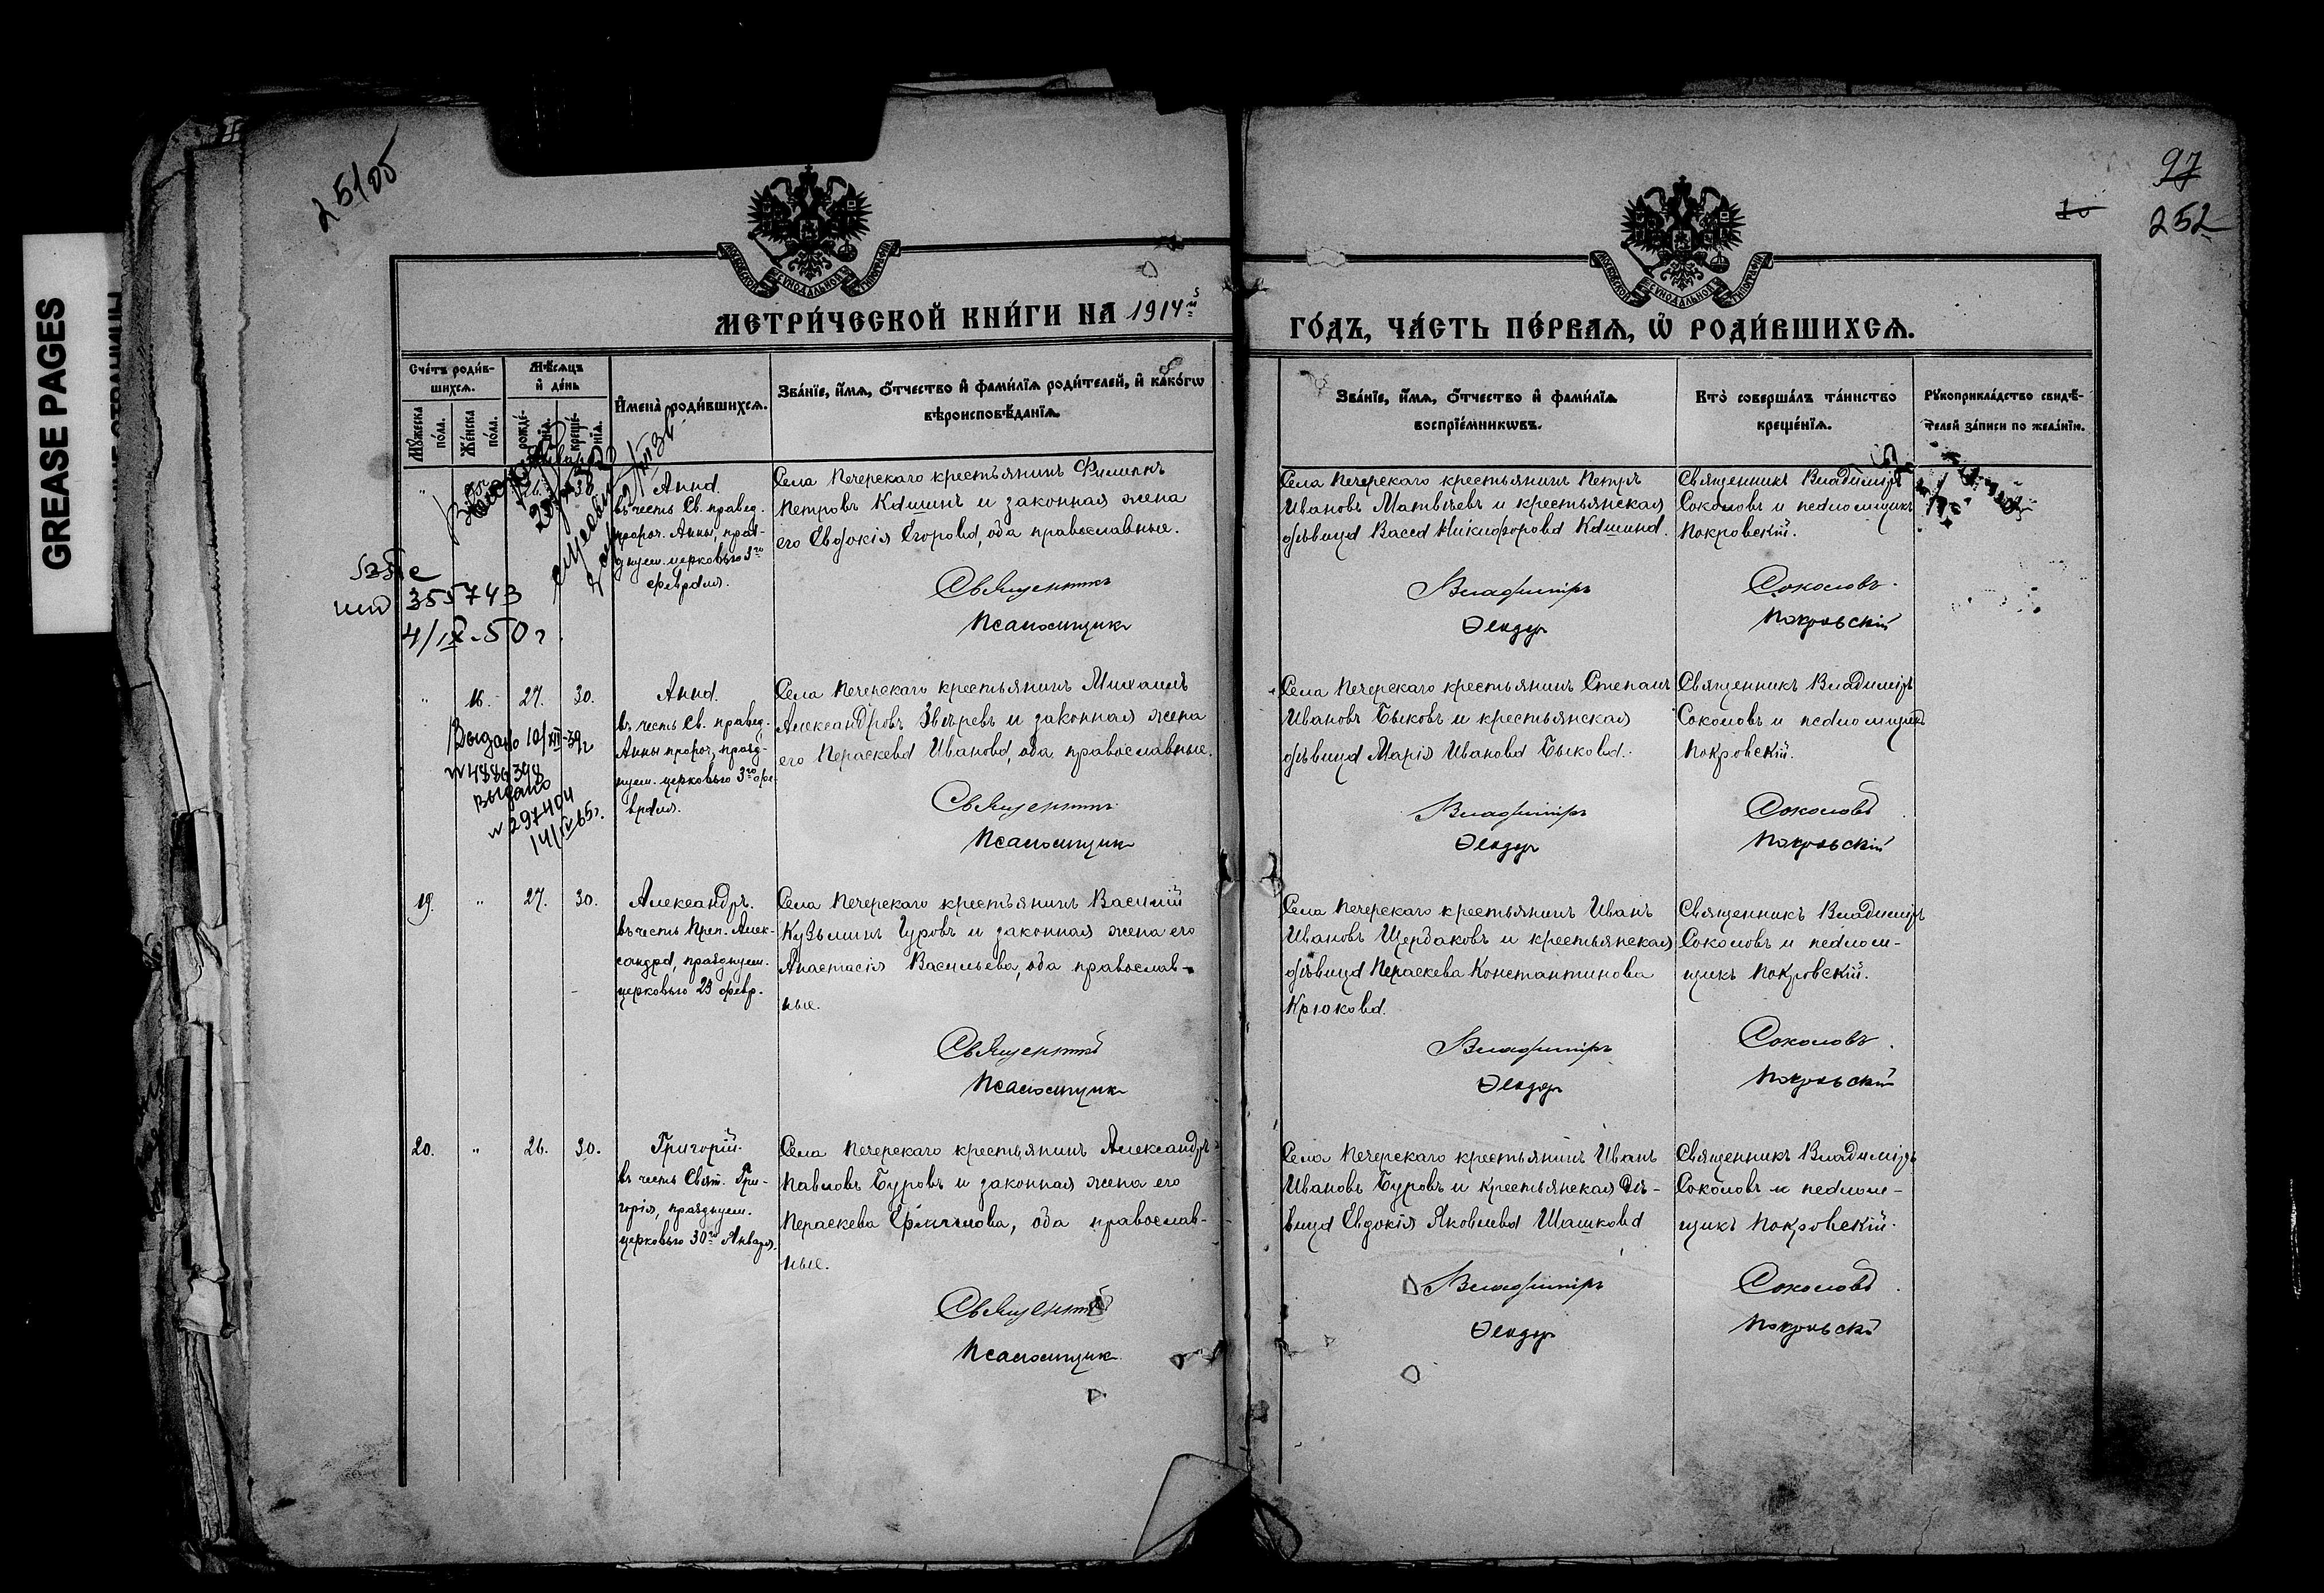 GREASE PAGES
25105
97
252
МЕТРИ́ЧЕСКОЙ КНИ́ГИ НА 1914й
ГО́ДЪ, ЧА́СТЬ ПЕ́РВАѦ, Ѿ РОДИ́ВШИХСѦ.
Сче́тъ роди́в-
шихсѧ.
Мꙋ́жеска по́ла.
Же́нска по́ла.
Мѣ́сѧцъ и де́нь
рожде́-
нїѧ.
креще́-
нїѧ.
Имена̀ роди́вшихсѧ.
Зва́нїе, и́мѧ, о́тчество и фами́лїѧ роди́телей, и како́гѡ
вѣроисповѣ́данїѧ.
Зва́нїе, и́мѧ, о́тчество и фами́лїѧ
воспрїе́мникѡвъ.
Кто̀ соверша́лъ та́инство
креще́нїѧ.
Рꙋкоприкла́дство свидѣ́-
телей за́писи по жела́нїю.
Анна.
въ честь Св. правед.
пророч. Анны, праз-
днуем. церковью 3го
февраля.
355743
4/IX-50 г.
Села Печерскаго крестьянинъ Филиппъ
Петровъ Кашинъ и законная жена
его Евдокія Егорова, оба православные.
Священникъ
Псаломщикъ
Села Печерскаго крестьянинъ Петръ
Ивановъ Матвѣевъ и крестьянская
дѣвица Васса Никифорова Кашина.
Владиміръ
Ѳеодоръ
Священникъ Владиміръ
Соколовъ и псаломщикъ
Покровскій.
Соколовъ.
Покровскій
" 16. 27. 30.
Анна.
въ честь Св. правед.
Анны пророч., празд-
нуем. церковью 3го фе-
враля.
Выдано 10/XII-39г
выдано
№ 297404
14/IV 65г.
Села Печерскаго крестьянинъ Михаилъ
Александровъ Звѣревъ и законная жена
его Параскева Иванова, оба православные.
Священникъ
Псаломщикъ
Села Печерскаго крестьянинъ Степанъ
Ивановъ Быковъ и крестьянская
дѣвица Марія Иванова Быкова.
Владиміръ
Ѳеодоръ
Священникъ Владиміръ
Соколовъ и псаломщикъ
Покровскій.
Соколовъ
Покровскій
19. " 27. 30.
Александръ.
въ честь Преп. Алек-
сандра, празднуем.
церковью 23 февр.
Села Печерскаго крестьянинъ Василій
Кузьминъ Гуровъ и законная жена его
Анастасія Васильева, оба православ-
ные.
Священникъ
Псаломщикъ
Села Печерскаго крестьянинъ Иванъ
Ивановъ Щердаковъ и крестьянская
дѣвица Параскева Константинова
Крюкова.
Владиміръ
Ѳеодоръ
Священникъ Владиміръ
Соколовъ и псалом-
щикъ Покровскій.
Соколовъ.
Покровскій
20. " 26. 30.
Григорій.
въ честь Свят. Гри-
горія, празднуем.
церковью 30го Января.
Села Печерскаго крестьянинъ Александръ
Павловъ Буровъ и законная жена его
Параскева Филиппова, оба православ-
ные.
Священникъ
Псаломщикъ
Села Печерскаго крестьянинъ Иванъ
Ивановъ Буровъ и крестьянская дѣ-
вица Евдокія Яковлева Шашкова
Владиміръ
Ѳеодоръ
Священникъ Владиміръ
Соколовъ и псалом-
щикъ Покровскій.
Соколовъ
Покровскій